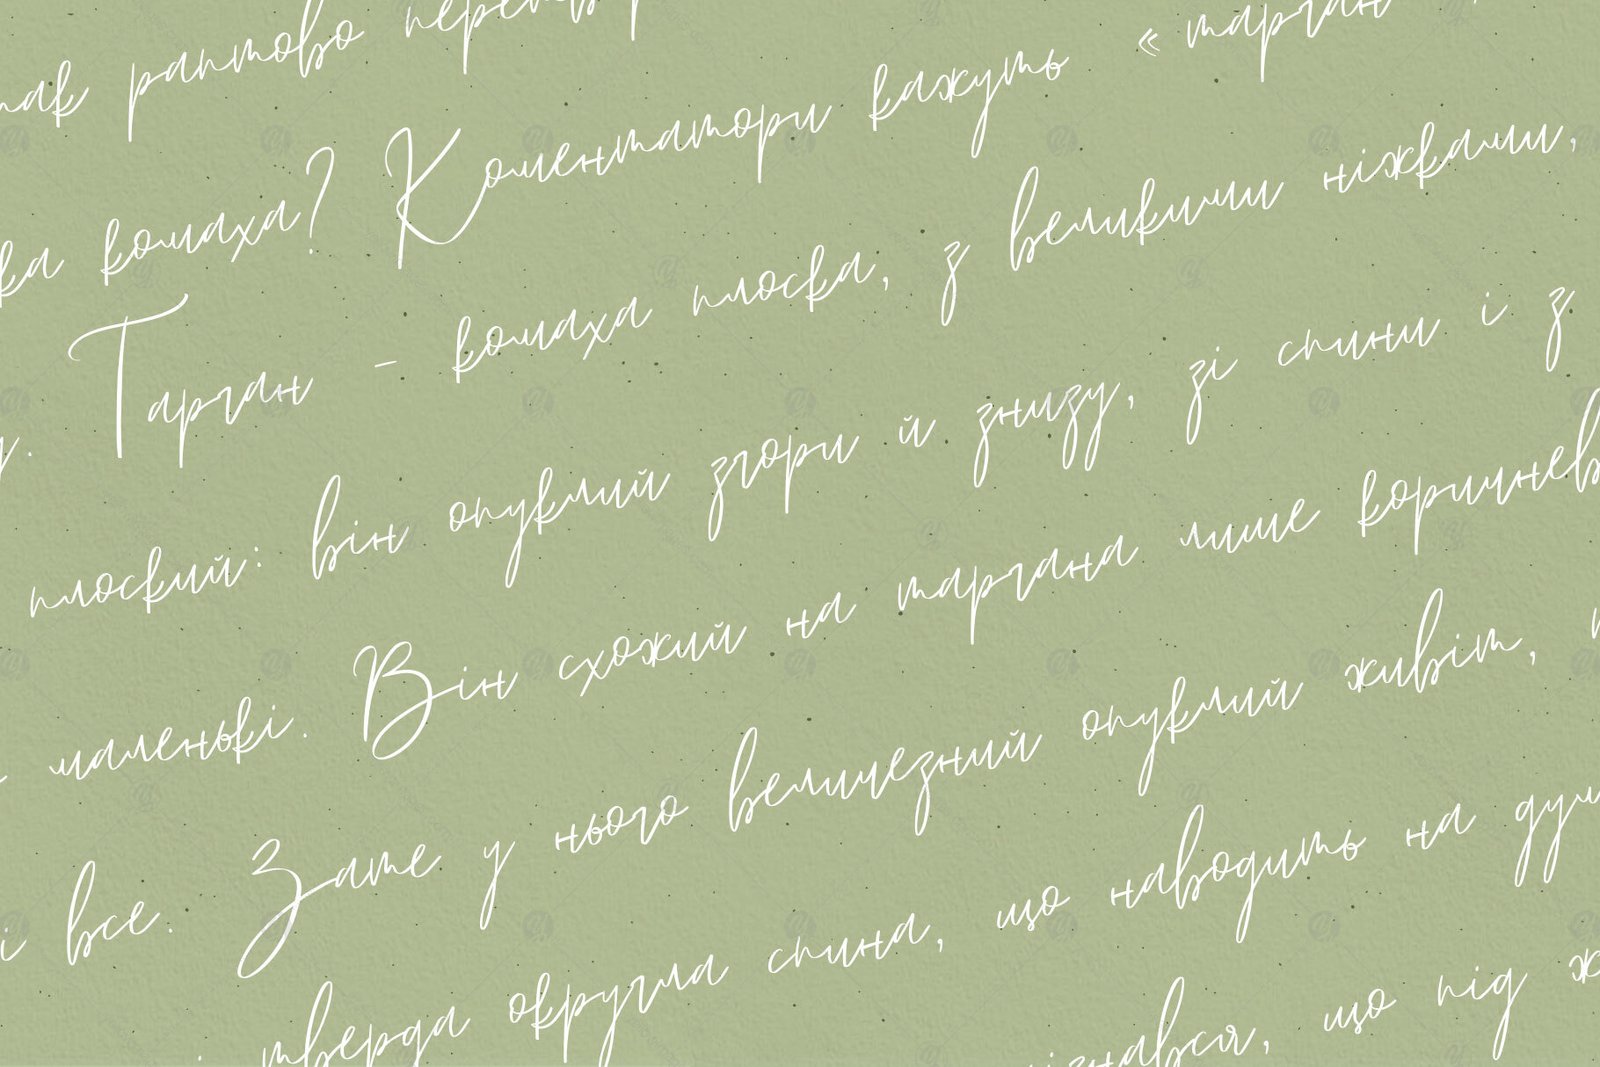 так раптово
ка комаха? Коментатори кажуть « тарган
у. Тарган - комаха плоска, з великими ніжками,
плоский: він опуклий згори й знизу, зі спини і з
маленькі. Він схожий на таргана лише коричнев
і все. Зате у нього величезний опуклий живіт,
тверда округла спина, що наводить на дум
ізнався, що під ж